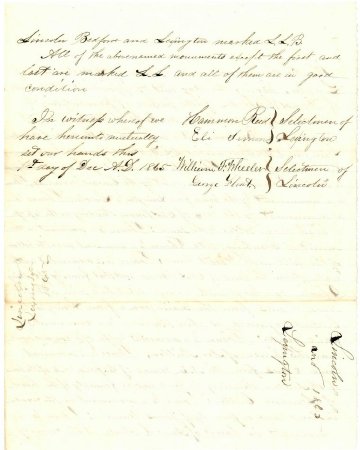 Lincoln Bedford and Lexington marked L L B
All of the abovenamed monuments except the first and
last are marked L L and all of them are in good
condition
In witness whereof we
have hereunto mutually
set our hands this
1st day of Dec A.D. 1865
Hammon Reed
Eli Simonds
Selectmen of
Lexington
William F. Wheeler
George Flint
Selectmen of
Lincoln
Lincoln &
Lexington
1865
Lincoln
and 1865
Lexington